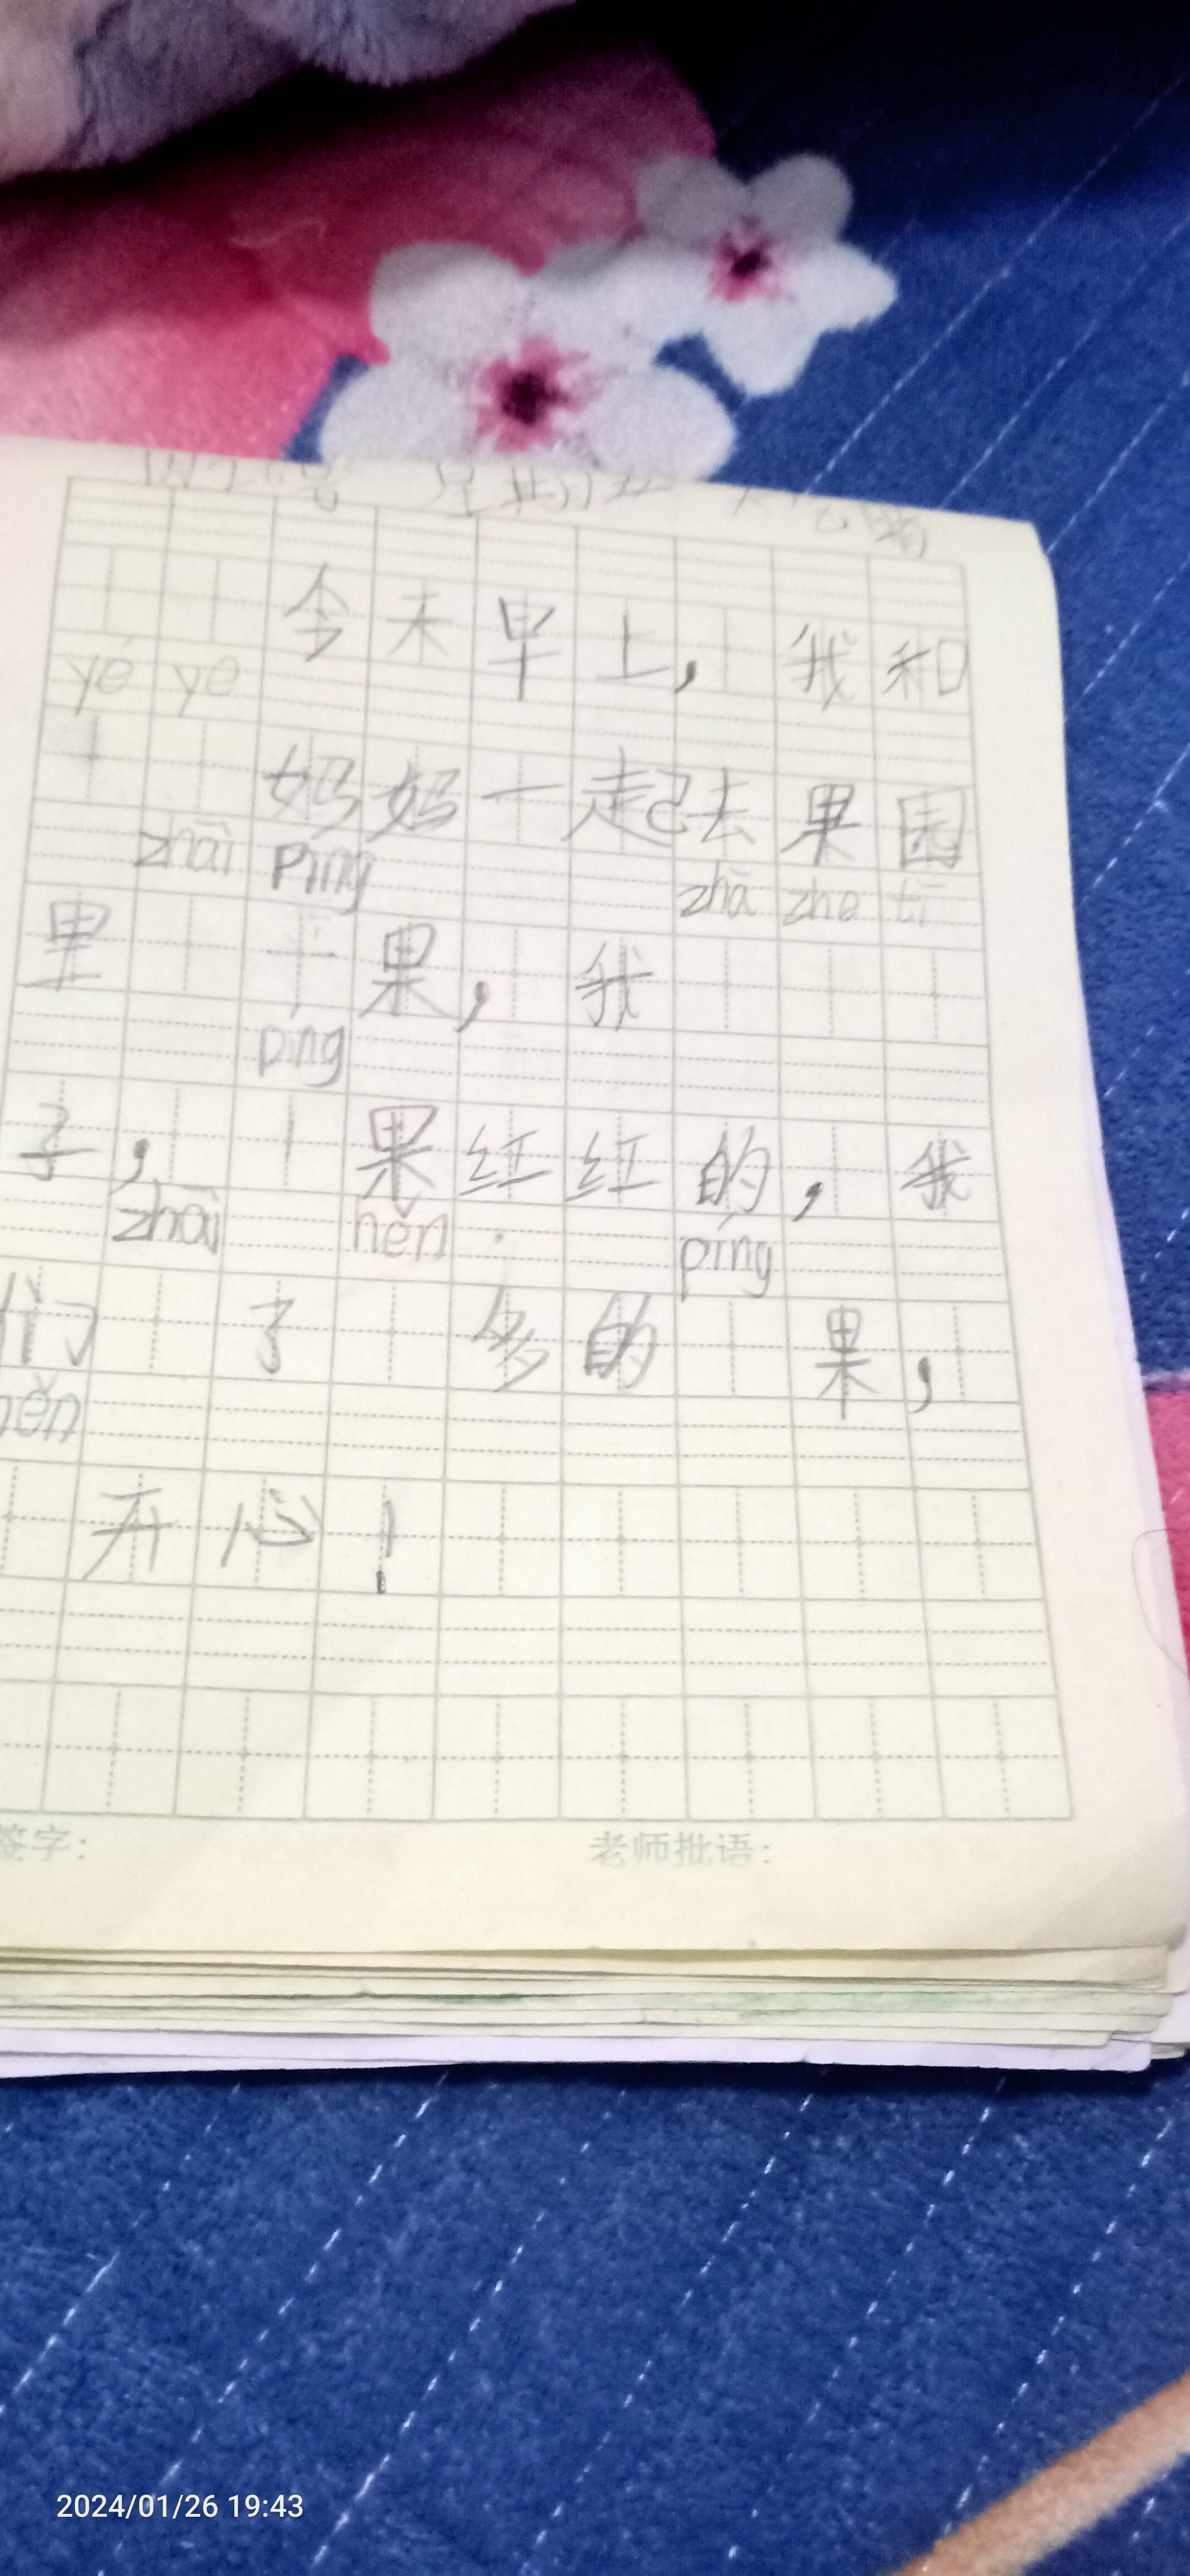 1月26号 星期五 天气晴
今天早上，我和
yé ye
妈妈一起去果园
zhāi píng zhā zhe tī
里 果，我
píng
子， 果红红的，我
zhāi hěn píng
们 了 多的 果，
hěn
开心！
签字： 老师批语：
2024/01/26 19:43